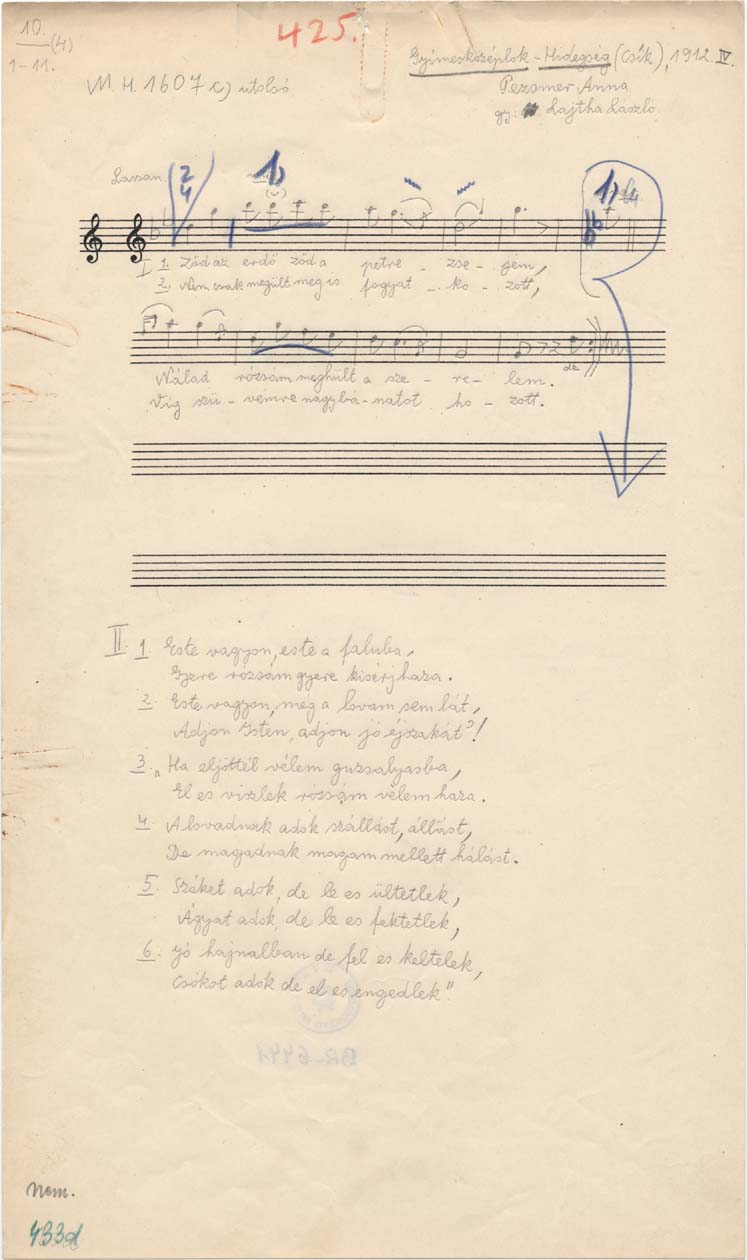 10. (4)
1-11.
425.
Gyimesközéplok - Hidegség (Csík), 1912. IV.
M. H. 1607 c) utolsó
Pezsmer Anna
gy. Lajtha László
Lassan.
2/4
1)
1)
I 1. Zöd az erdő zöd a petre - zse - jém,
2, Nem csak megült meg is fogyat - ko - zott,
de
Nálad rózsám meghült a sze - re - lem.
Víg szü - vemre nagy bá - natot ho - zott.
II. 1. Este vagyon, este a faluba,
Gyere rózsám gyere kisérj haza.
2. Este vagyon, még a lovam sem lát,
Adjon Isten, adjon jó éjszakát!
3. „Ha eljöttél vélem guzsalyasba,
El es viszlek rózsám vélem haza.
4. A lovadnak adok szállást, állást,
De magadnak magam mellett hálást.
5. Széket adok, de le es ültetlek,
Ágyat adok, de le es fektetlek,
6. Jó hajnalban de fel es keltelek,
Csókot adok de el es engedlek"
BR-6441
nem.
433d